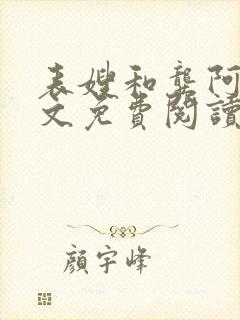 表嫂和龔阿
文免費閱讀
顏宇峰